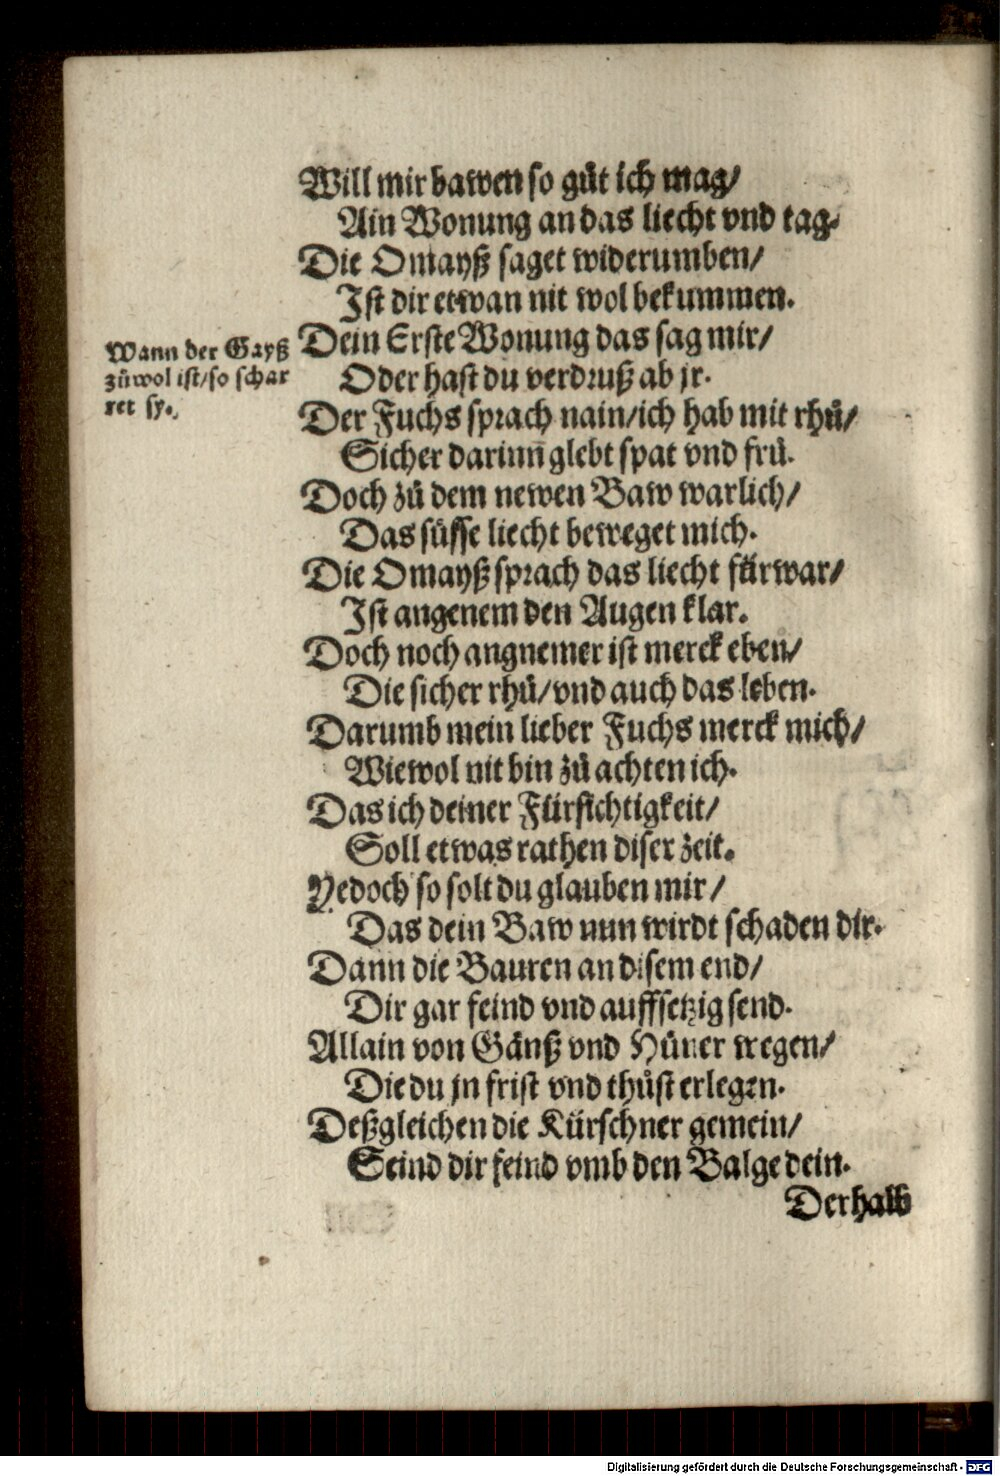 Will mir bawen so gůt ich mag/
Ain Wonung an das liecht vnd tag.
Die Omayß saget widerumben/
Ist dir etwan nit wol bekummen.
Wann der Gayß
zůwol ist/so schar
ret sy.
Dein Erste Wonung das sag mir/
Oder hast du verdruß ab jr.
Der Fuchs sprach nain/ich hab mit rhů/
Sicher darinn glebt spat vnd frů.
Doch zů dem newen Baw warlich/
Das süsse liecht beweget mich.
Die Omayß sprach das liecht fürwar/
Ist angenem den Augen klar.
Doch noch angnemer ist merck eben/
Die sicher rhů/vnd auch das leben.
Darumb mein lieber Fuchs merck mich/
Wiewol nit bin zů achten ich.
Das ich deiner Fürsichtigkeit/
Soll etwas rathen diser zeit.
Yedoch so solt du glauben mir/
Das dein Baw nun wirdt schaden dir.
Dann die Bauren an disem end/
Dir gar feind vnd auffsetzig send.
Allain von Gänß vnd Hüner wegen/
Die du jn frist vnd thůst erlegen.
Deßgleichen die Kürschner gemein/
Seind dir feind vmb den Balge dein.
Derhalb
Digitalisierung gefördert durch die Deutsche Forschungsgemeinschaft - DFG